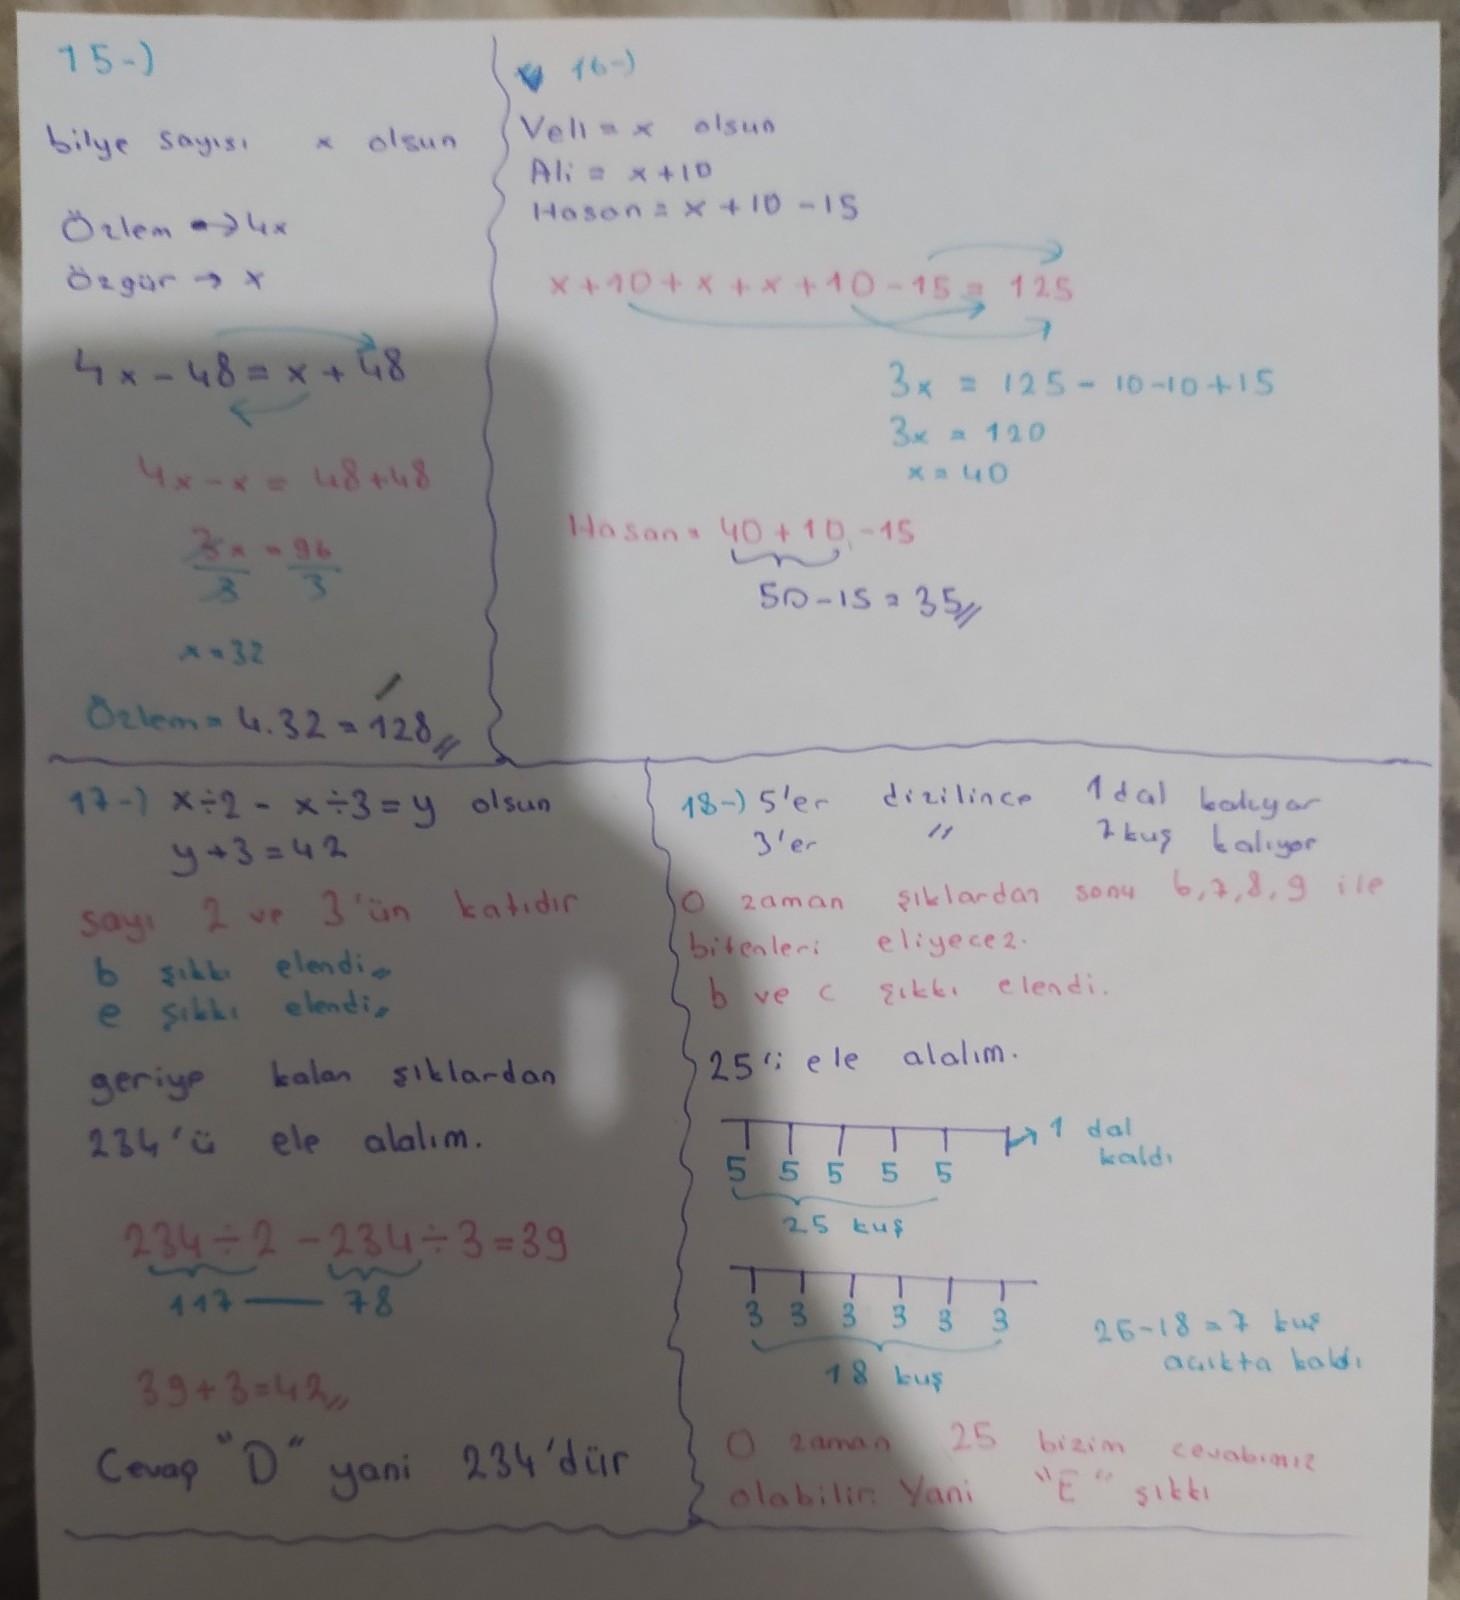 15-)
bilye sayısı x olsun
Özlem → 4x
Özgür → x
4x - 48 = x + 48
4x - x = 48+48
3x = 96
3 3
x = 32
Özlem = 4.32 = 128
16-)
Veli = x olsun
Ali = x+10
Hasan = x + 10 - 15
x + 10 + x + x + 10 - 15 = 125
3x = 125 - 10 - 10 + 15
3x = 120
x = 40
Hasan = 40 + 10 - 15
50 - 15 = 35
17-) x÷2 - x÷3 = y olsun
y+3=42
sayı 2 ve 3'ün katıdır
b şıkkı elendi
e şıkkı elendi
geriye kalan şıklardan
234'ü ele alalım.
234÷2 - 234÷3=39
117 — 78
39+3=42
Cevap "D" yani 234'dür
18-) 5'er dizilince 1 dal kalıyor
3'er " 7 kuş kalıyor
O zaman şıklardan sonu 6,7,8,9 ile
bitenleri eliyecez.
b ve c şıkkı elendi.
25'i ele alalım.
→ 1 dal
kaldı
5 5 5 5 5
25 kuş
3 3 3 3 3 3
18 kuş
25-18=7 kuş
açıkta kaldı
O zaman 25 bizim cevabımız
olabilir. Yani "E" şıkkı